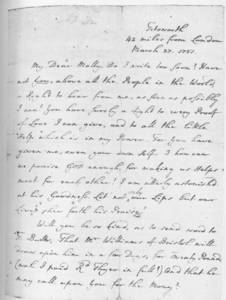 Tetsworth
42 miles from London
March 27. 1751.
My Dear Molly, Do I write too soon? Have
not you, above all the People in the World,
a Right to hear from me, as soon as possibly
I can? You have surely a Right to every Proof
of Love I can give, and to all the little
Help which is in my Power. For you have
given me, even your own self. O how can
we praise God enough, for making us Helps
meet for each other? I am utterly astonished
at his Goodness. Let not our Lips but our
Lives shew forth his Praise.
Will you be so kind, as to send word to
T. Butts, That Mr Williams of Bristol will
draw upon him in a few Days, for twenty Pound,
(wch I paid R. Thyer in full) And that he
may call upon you for the Money?